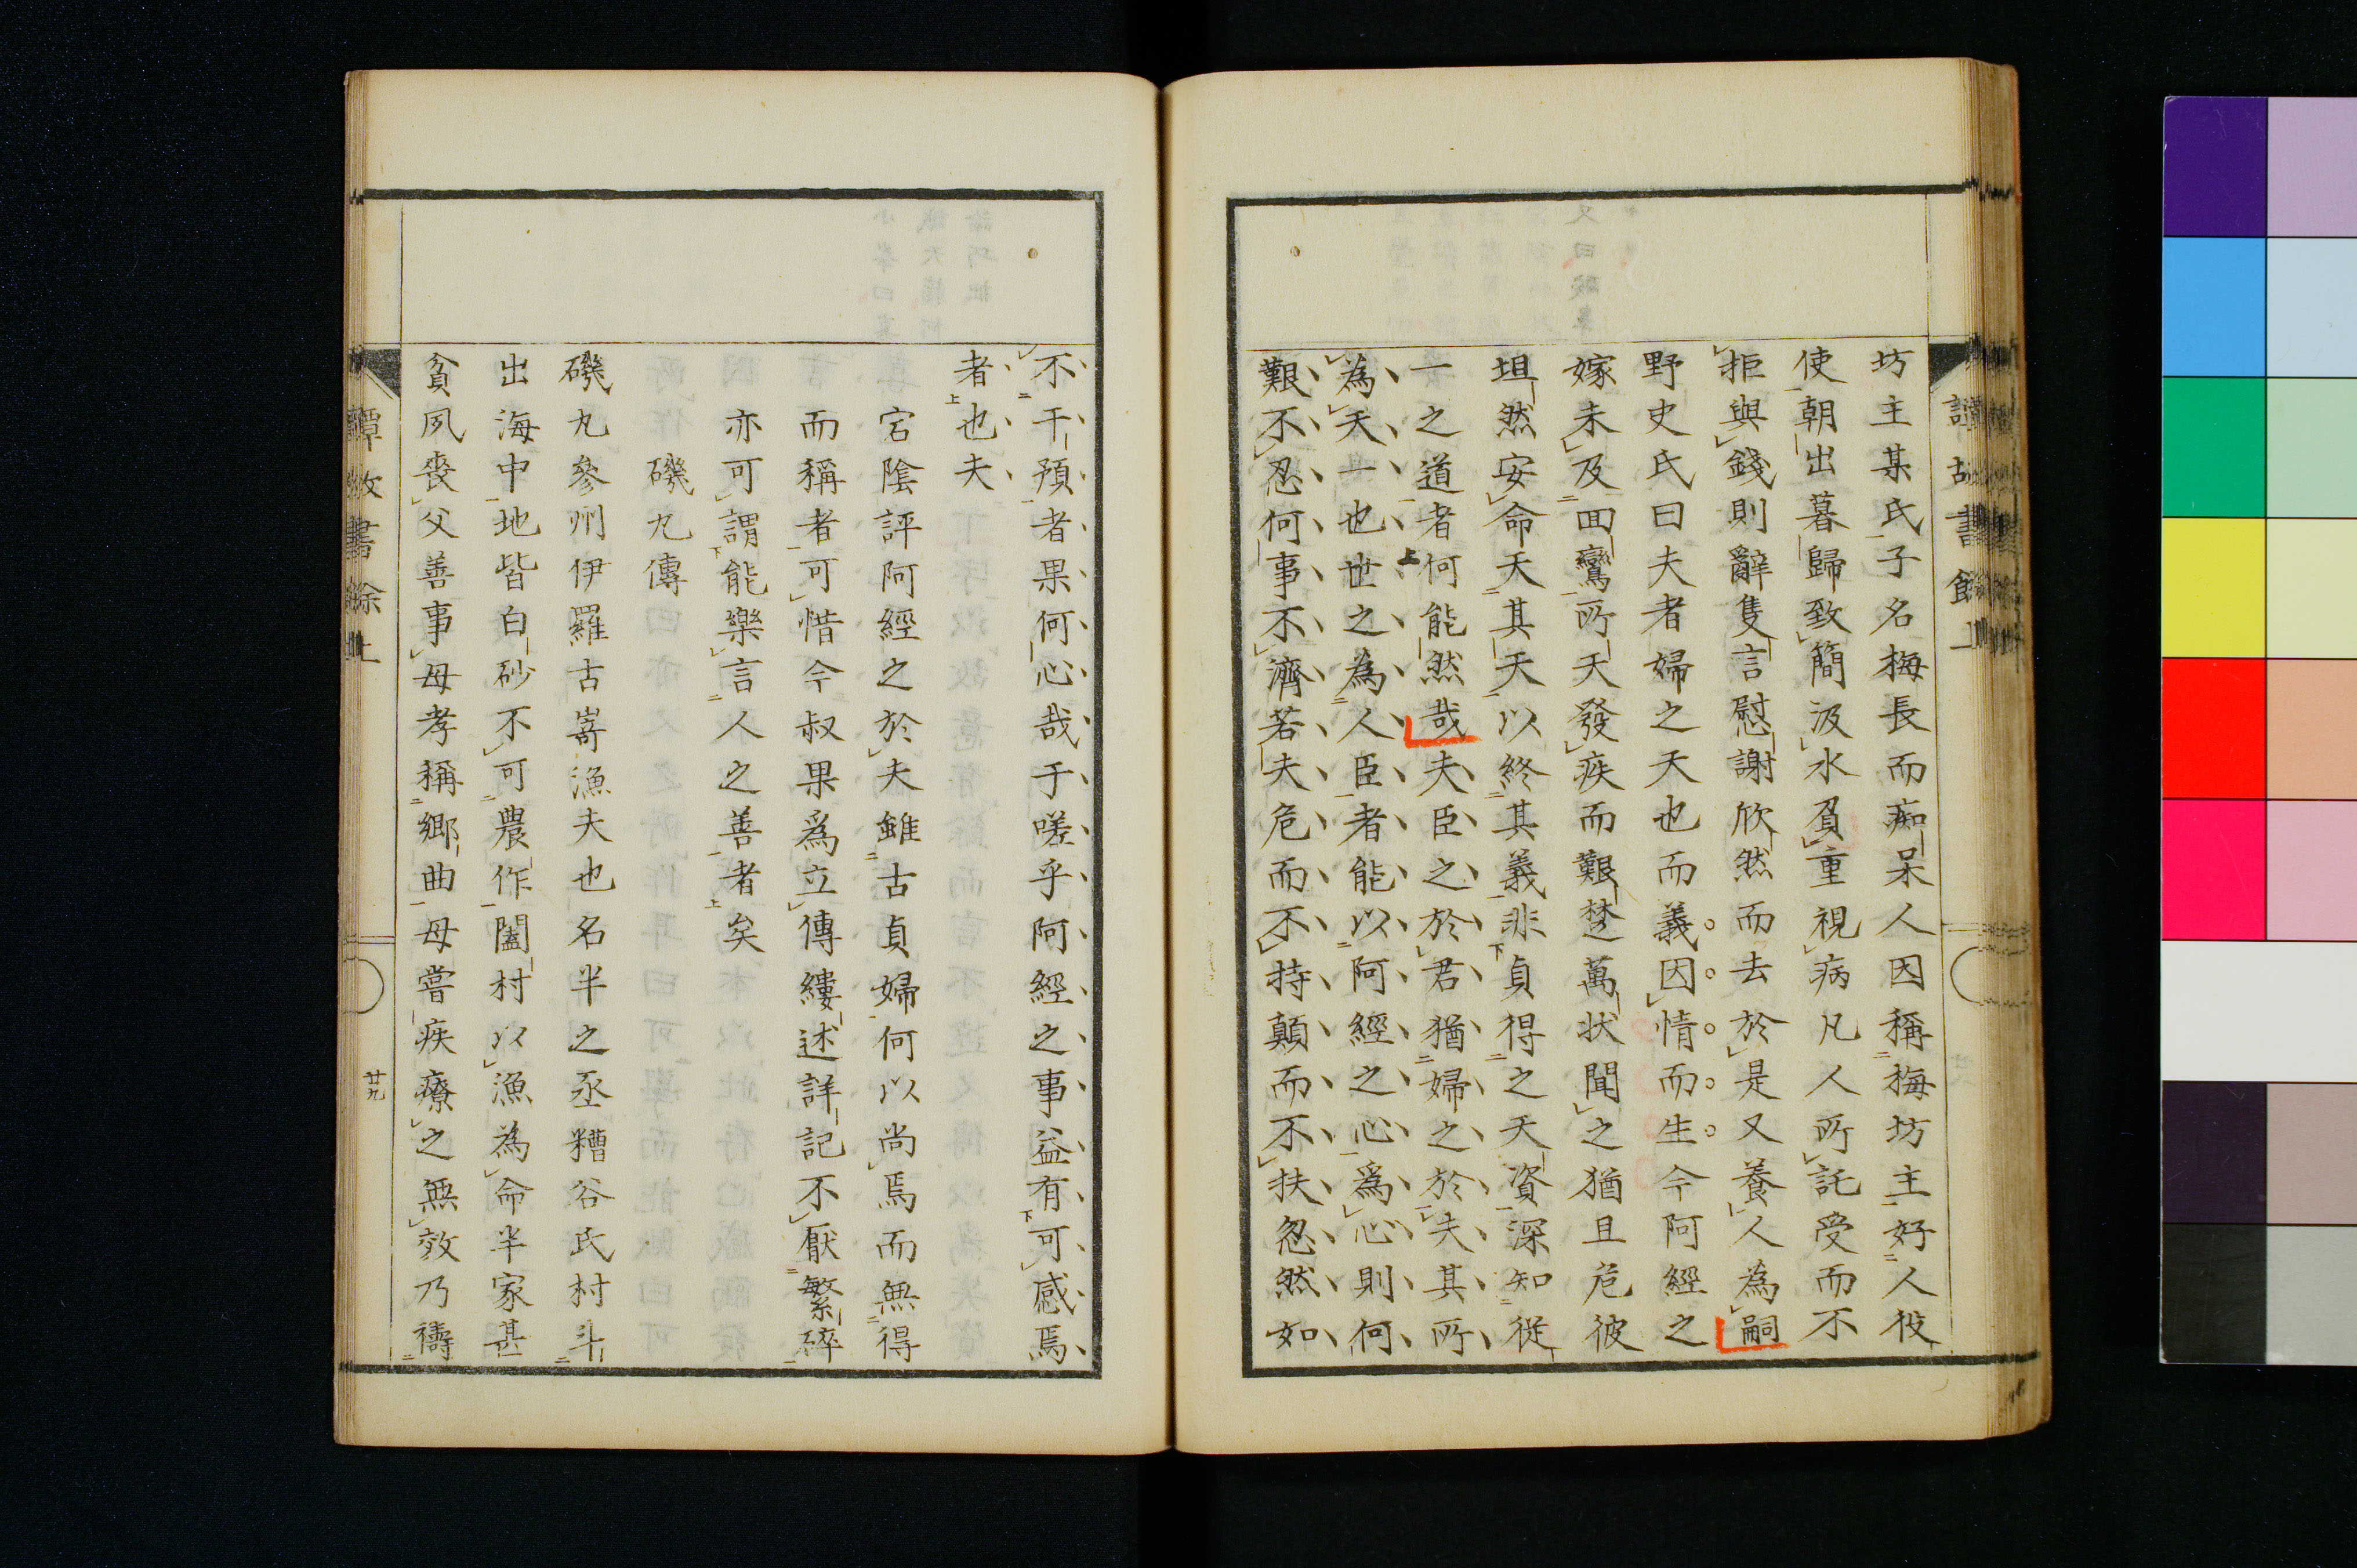 坊主某氏子名梅長而痴呆人因稱梅坊主好人役
使朝出暮歸致簡汲水負重視病凡人所託受而不
拒與錢則辭隻言慰謝欣然而去於是又養人為嗣
野史氏曰夫者婦之天也而義因情而生今阿經之
嫁未及回鸞所天發疾而艱楚萬狀聞之猶且危彼
坦然安命天其天以終其義非貞得之天資深知從
一之道者何能然哉夫臣之於君猶婦之於夫其所
為天一也世之為人臣者能以阿經之心爲心則何
艱不忍何事不濟若夫危而不持顛而不扶忽然如
不干預者果何心哉于嗟乎阿經之事益有可感焉
者也夫
宕陰評阿經之於夫雖古貞婦何以尚焉而無得
而稱者可惜今叔果爲立傳縷述詳記不厭繁碎
亦可謂能樂言人之善者矣
磯九傳
磯九參州伊羅古嵜漁夫也名半之丞糟谷氏村斗
出海中地皆白砂不可農作闔村以漁為命半家甚
貧夙喪父善事母孝稱鄉曲母嘗疾療之無效乃禱
譚故書餘上
廿九